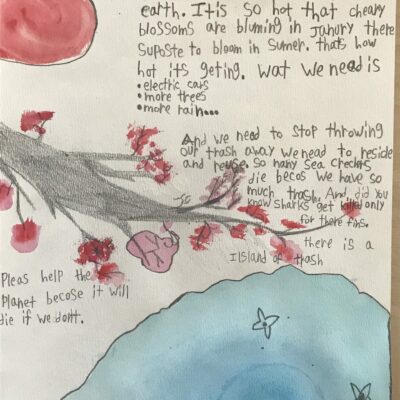 earth. It is so hot that cheary
blossoms are bluming in janury there
suposte to bloom in sumer. thats how
hot its geting. wat we need is
• electric cars
• more trees
• more rain...
And we need to stop throwing
our trash away we need to reside
and reuse. So many sea crechrs
die becos we have so
much trash. And, did you
know sharks get killed only
for there fins.
there is a
Iland of trash
Pleas help the
Planet becose it will
die if we dont.